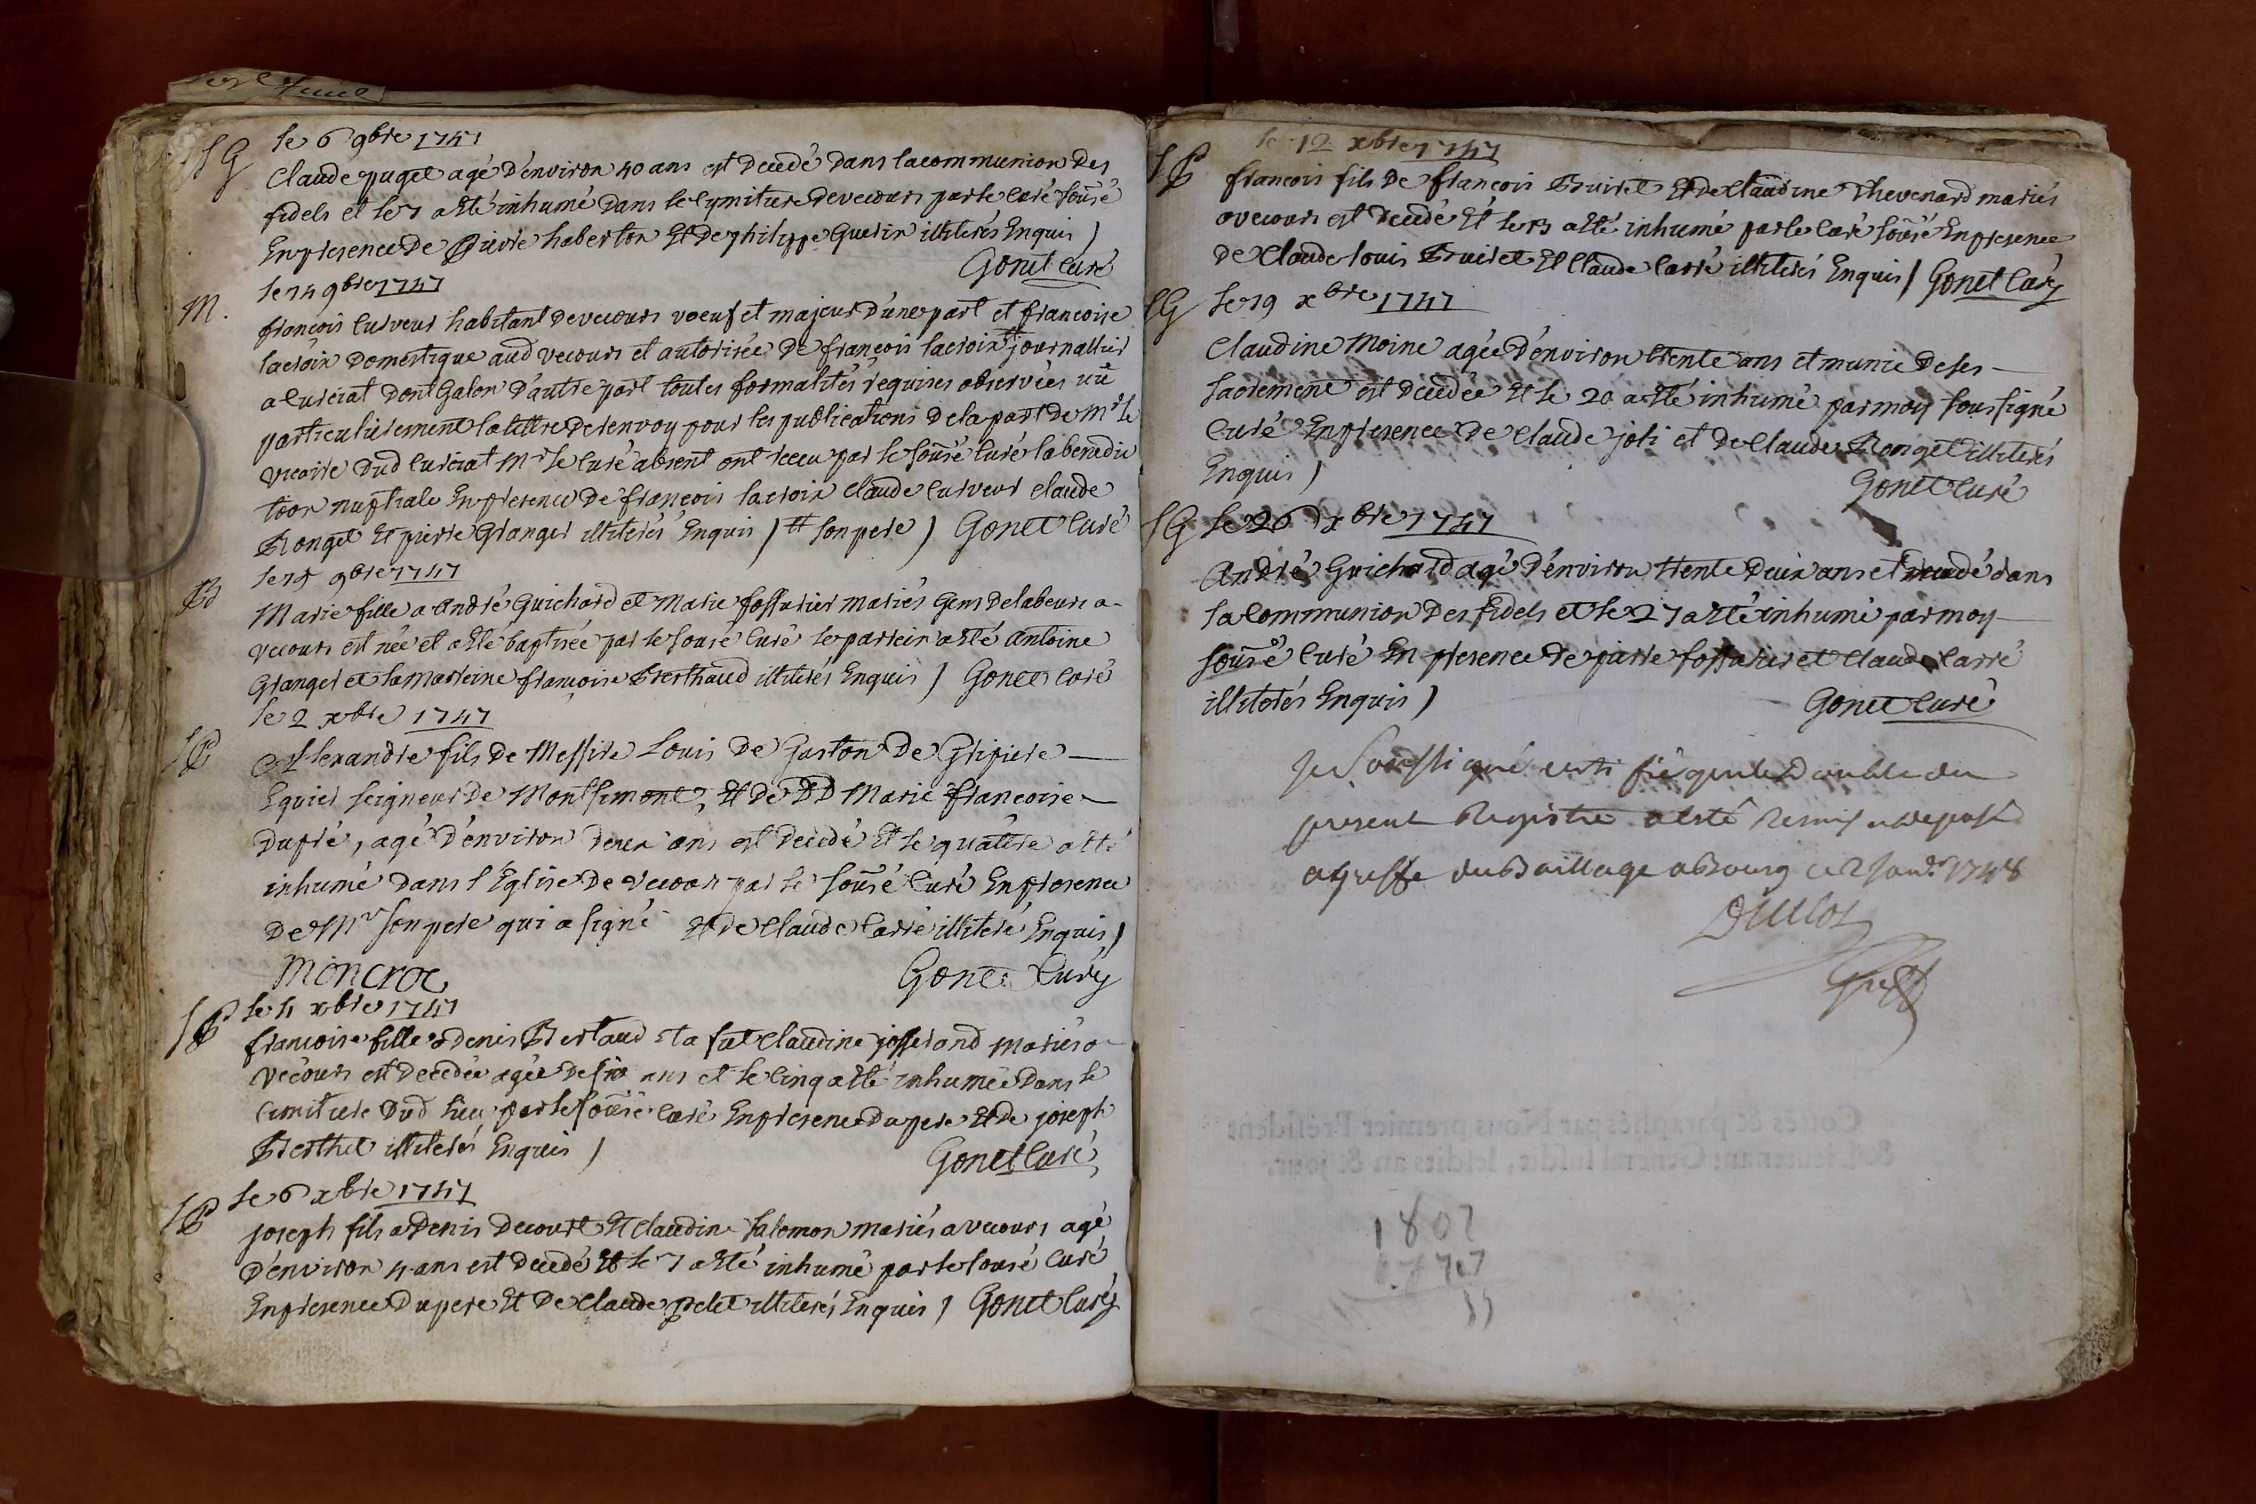 SG le 6 9bre 1747
Claude puget agé d'environ 40 ans est decedé dans la communion des
fidels et le 7 a été inhumé dans le cymitiere de vecours par le curé sousé
En presence de Pierre haberton Et de philippe Guerin illiterés Enquis /
Gonet Curé
le 14 9bre 1747
M. françois Curveur habitant de vecours voeuf et majeur d'une part et francoise
lacroix domestique aud vecours et autorisée de françois lacroix # journallier
a Curciat dont Galon d'autre part toutes formalités requises observées vû
particulierement la lettre de renvoy pour les publications de la part de Mr le
vicaire dud Curciat Mr le Curé absent ont receu par le sousé Curé la benedic
tion nuptiale En presence de françois lacroix Claude Curveur Claude
Ronget Et pierre Granger illiterés Enquis / # son pere / Gonet Curé
le 19 9bre 1747
B Marie fille a André Guichard et Marie fossurier mariés Gens de labeurs a
vecours est née et a été baptisée par le sousé Curé le parrein a été Antoine
Granger et la marreine françoise Berthaud illiterés Enquis / Gonet Curé
le 2 xbre 1747
SP Alexandre fils de Messire Louis De Gaston De
Equier seigneur de Et de DD Marie francoise
Dupré, agé d'environ deux ans est decedé Et le quatre a été
inhumé dans l'Eglise de vecour par le sousé Curé En presence
de Mr son pere qui a signé Et de Claude Carré illiteré Enquis /
Moncroc Gonet Curé
SP le 4 xbre 1747
francoise fille a denis Bertaud Et a fut Claudine josserand mariés a
vecours est decedée agée de six ans et le cinq a été inhumée dans le
cimitiere dud lieu par le sousé Curé En presence du pere Et de joseph
Berthet illiterés Enquis /
Gonet Curé
le 6 xbre 1747
SP joseph fils a Denis Decourt Et Claudine Salomon mariés a vecours agé
d'environ 4 ans est decedé Et le 7 a été inhumé par le sousé Curé
En presence du pere Et De Claude pelet illiterés Enquis / Gonet Curé
le 12 xbre 1747
SP francois fils de francois Bruiret Et de Claudine Thevenard mariés
a vecours est decedé Et le 13 a été inhumé par le Curé sousé En presence
de Claude Louis Bruiret Et Claude Carré illiterés Enquis / Gonet Curé
SG le 19 xbre 1747
Claudine Moine agée d'environ trente ans et munie de ses
sacrement est decedée Et le 20 a été inhumé par moy soussigné
Curé En presence de Claude joli et de Claude Ronget illiterés
Enquis /
Gonet Curé
SG le 26 xbre 1747
André Guichard agé d'environ trente deux ans est decedé dans
la Communion des fidels et le 27 a été inhumé par moy
sousé Curé En presence de pierre fossurier et Claude Carré
illiterés Enquis /
Gonet Curé
Je soussigné certifie que le Double du
present Registre a esté remis et deposé
au greffe du Baillage a Bourg ce 2 Janvr 1748
Greff
1802
1747
55